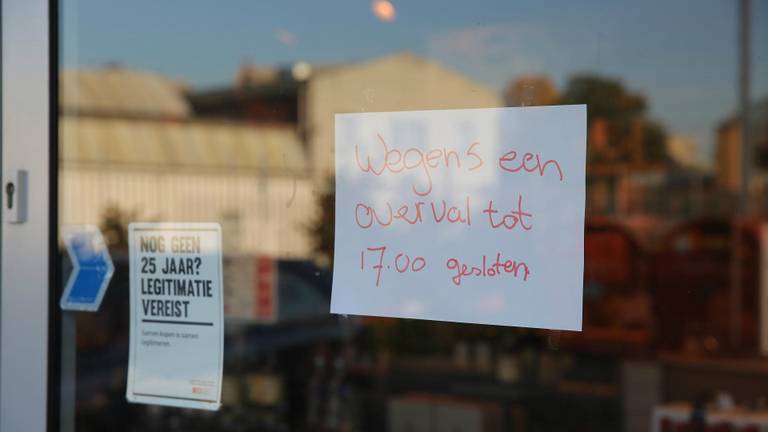 Wegens een
overval tot
17.00 gesloten
NOG GEEN
25 JAAR?
LEGITIMATIE
VEREIST
Samen kopen is samen
legitimeren.